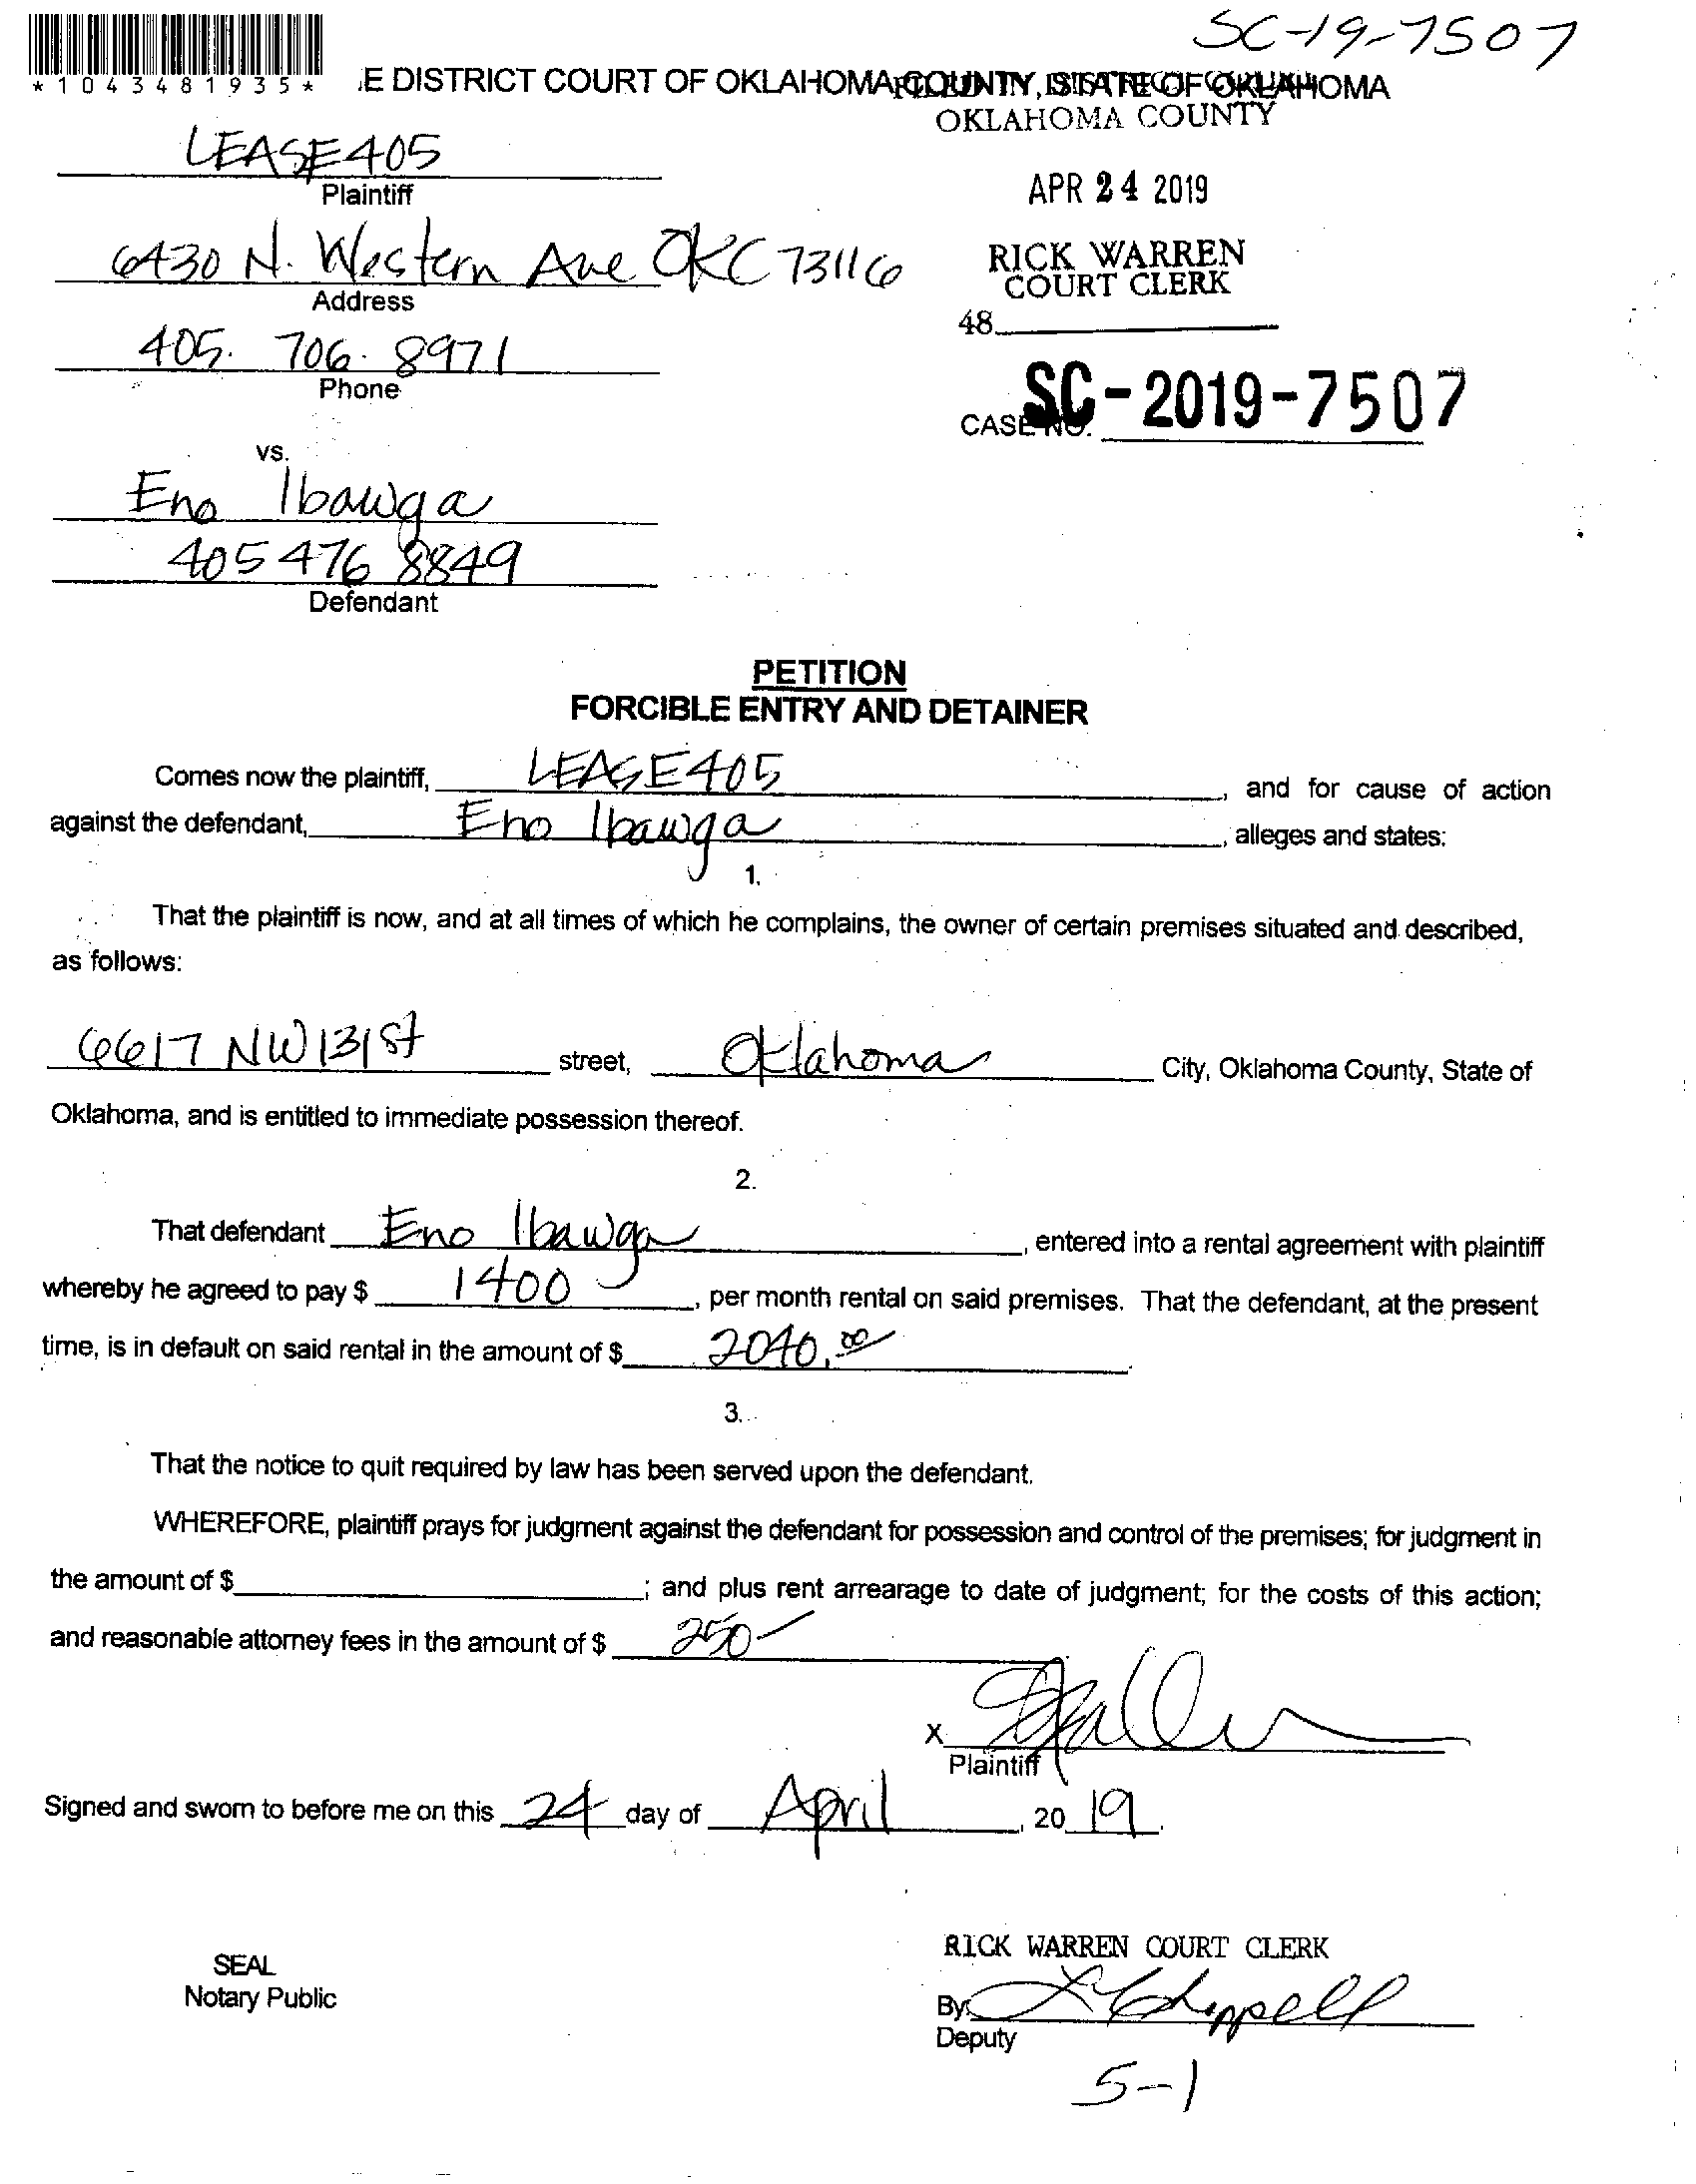 SC-19-7507
*1043481935*
E DISTRICT COURT OF OKLAHOMA COUNTY, STATE OF OKLAHOMA
OKLAHOMA COUNTY
LEASE405
Plaintiff
APR 24 2019
6430 N. Western Ave OKC 73116
Address
RICK WARREN
COURT CLERK
48
405. 706. 8971
Phone
CASE NO. SC-2019-7507
vs.
Eno Ibawga
405 476 8849
Defendant
PETITION
FORCIBLE ENTRY AND DETAINER
Comes now the plaintiff, LEASE405, and for cause of action
against the defendant, Eno Ibawga, alleges and states:
1.
That the plaintiff is now, and at all times of which he complains, the owner of certain premises situated and described,
as follows:
6617 NW 131st street, Oklahoma City, Oklahoma County, State of
Oklahoma, and is entitled to immediate possession thereof.
2.
That defendant Eno Ibawga, entered into a rental agreement with plaintiff
whereby he agreed to pay $ 1400, per month rental on said premises. That the defendant, at the present
time, is in default on said rental in the amount of $ 2040.00.
3.
That the notice to quit required by law has been served upon the defendant.
WHEREFORE, plaintiff prays for judgment against the defendant for possession and control of the premises; for judgment in
the amount of $; and plus rent arrearage to date of judgment; for the costs of this action;
and reasonable attorney fees in the amount of $ 250-
X
Plaintiff
Signed and sworn to before me on this 24 day of April, 20 19.
RICK WARREN COURT CLERK
SEAL
Notary Public
By:
Deputy
5-1